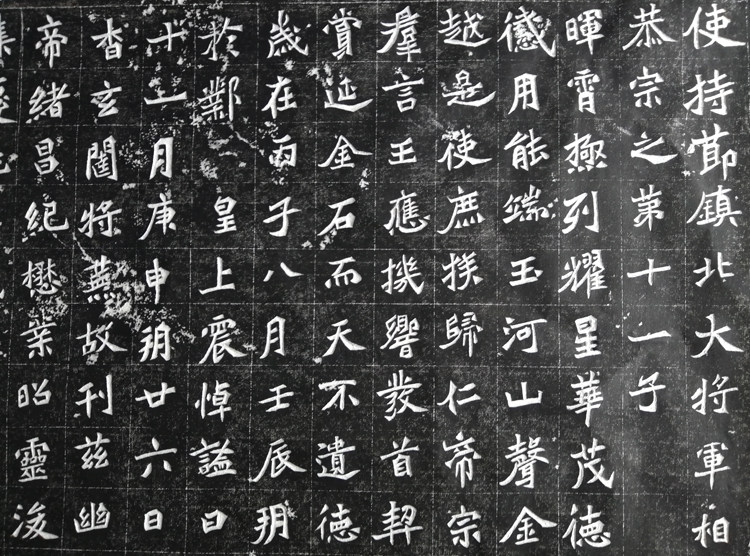 使持節鎮北大将軍相
恭宗之第十一子
暉霄極列耀星華茂德
用能端玉河山聲金
越是使庶族歸仁帝宗
羣言王應機響發首契
賞延金石而天不遺德
歲在丙子八月壬辰朔
於鄴皇上震悼謚曰
十一月庚申朔廿六日
杳玄闥将蕪故刊茲幽
帝緒昌紀懋業昭靈浚